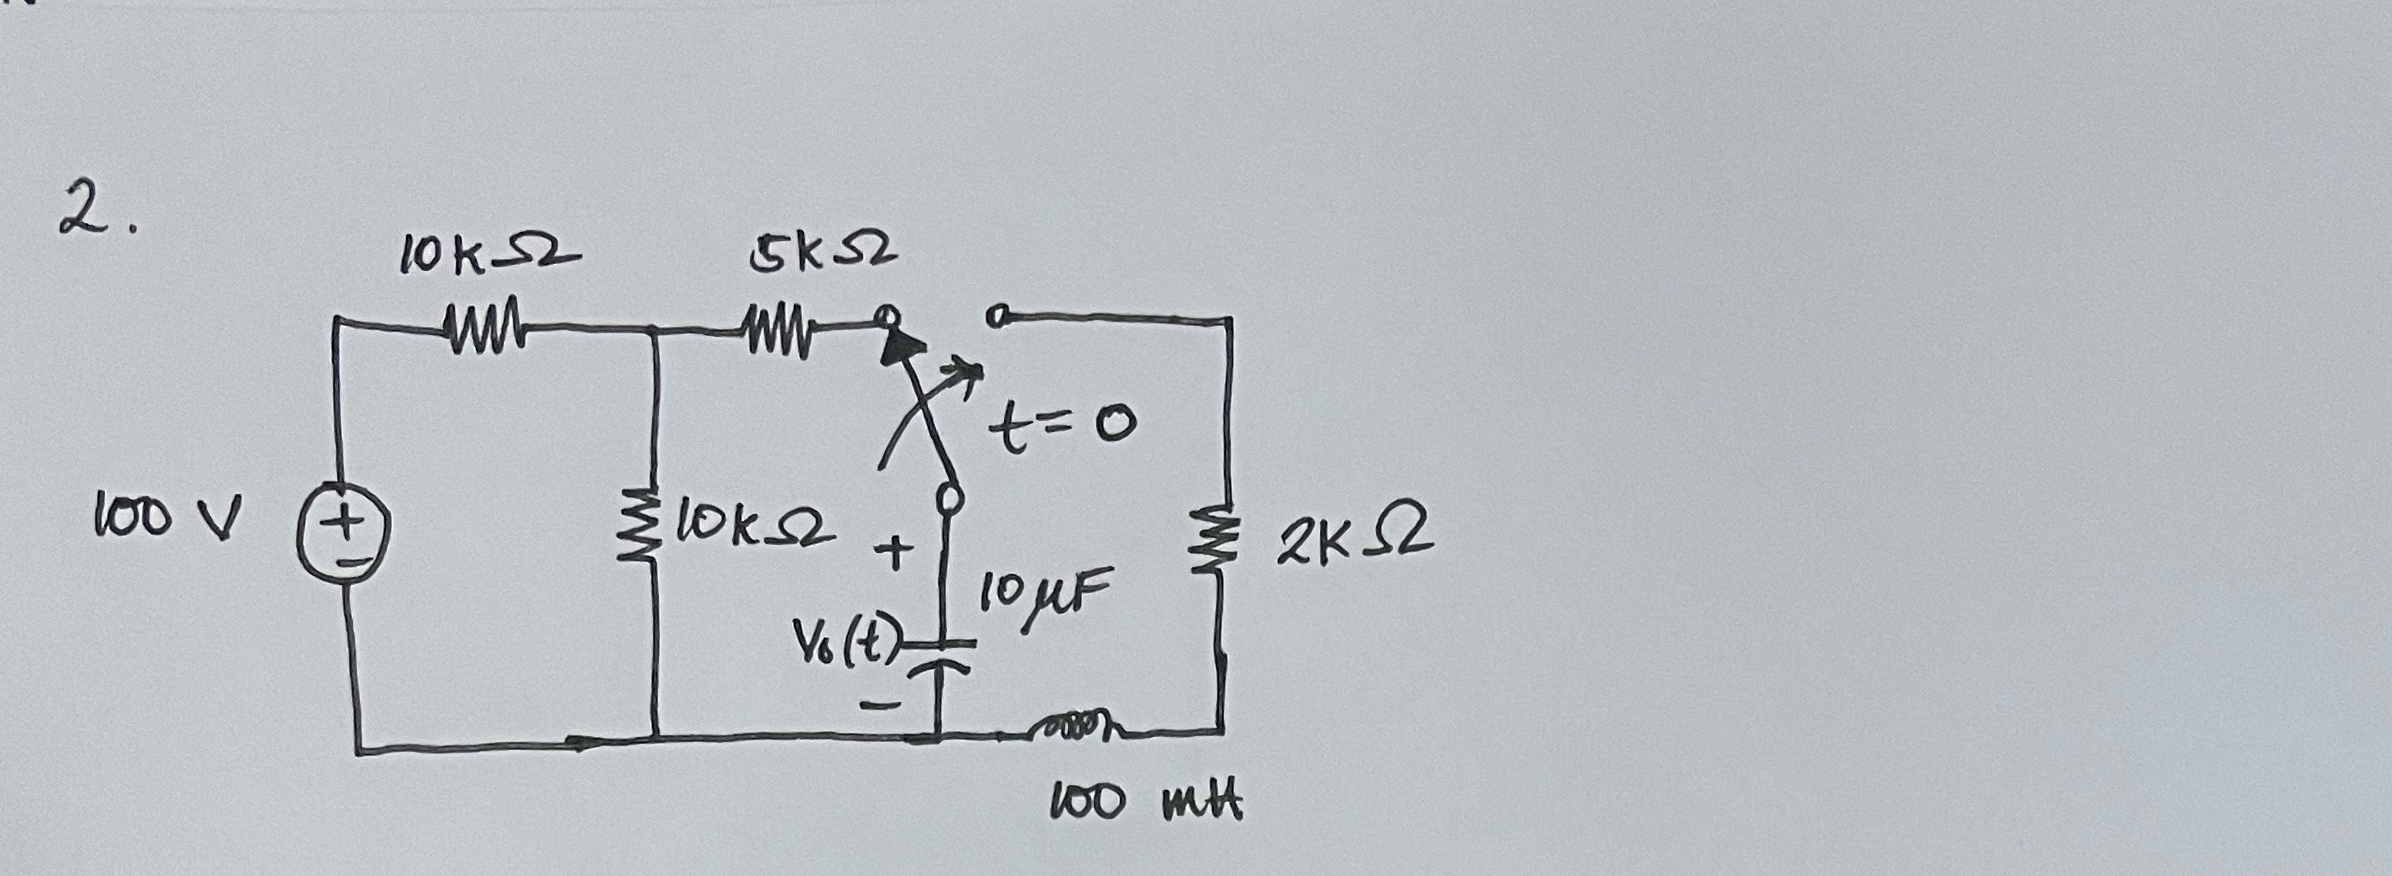 2.
10kΩ 5kΩ
t=0
100 V + − 10kΩ + 10μF 2KΩ
V₀(t)
−
100 mH